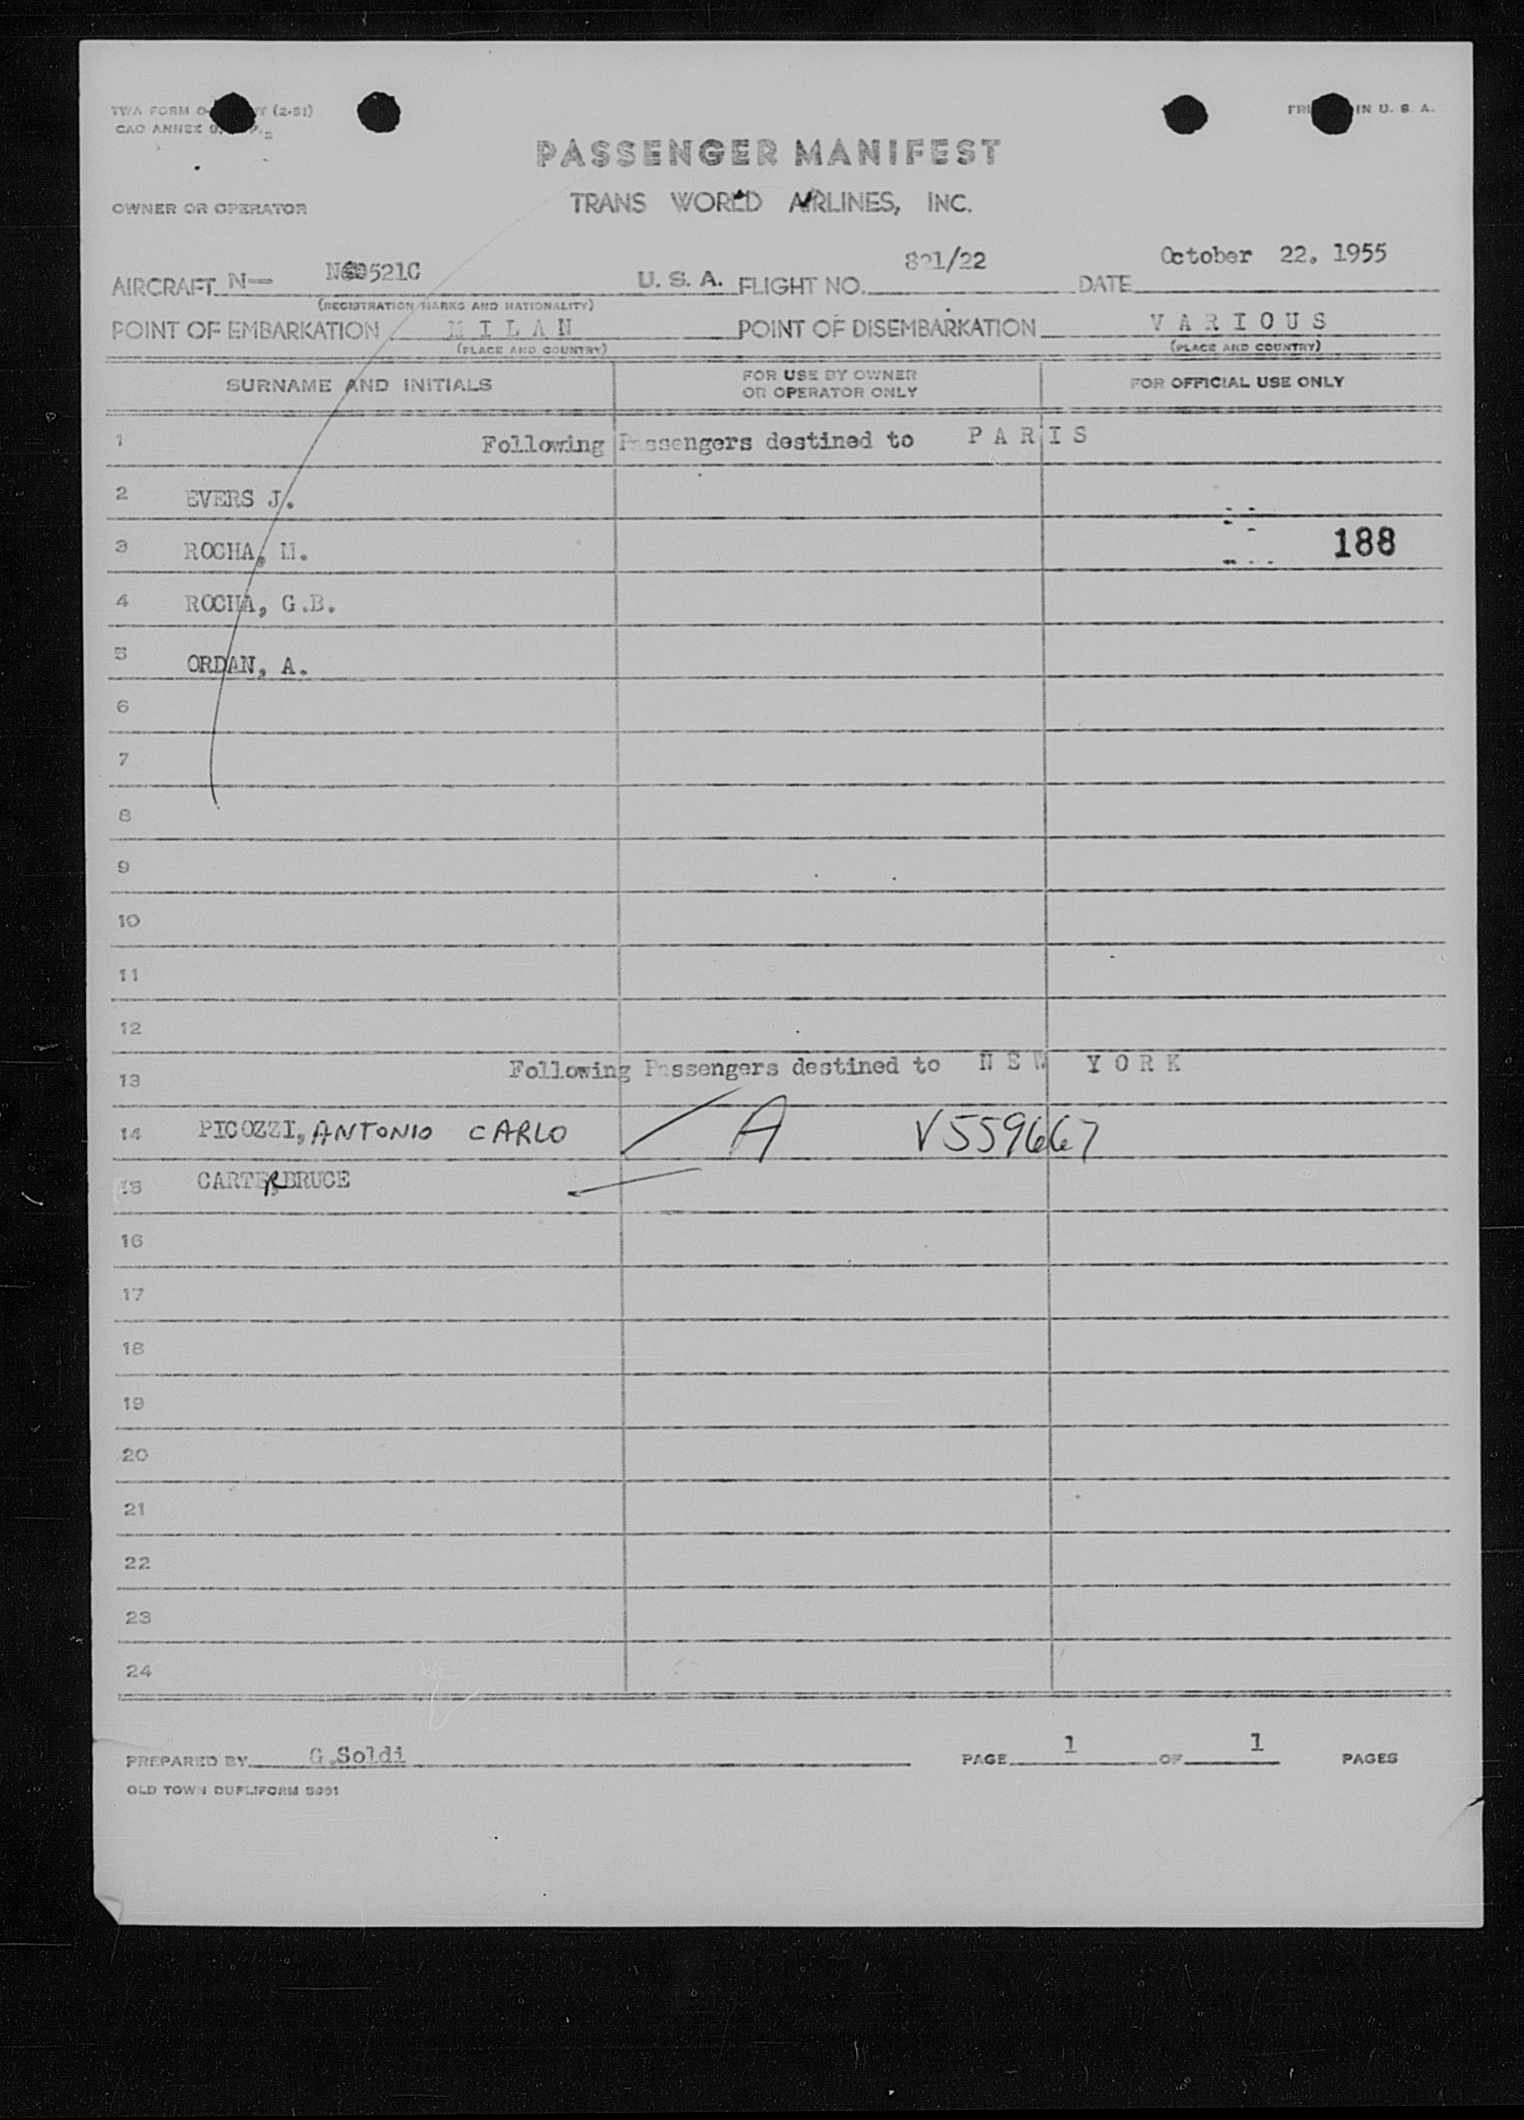 TWA FORM O- (2-51)
PRI IN U. S. A.
CAO ANNEX 9.
PASSENGER MANIFEST
OWNER OR OPERATOR TRANS WORLD AIRLINES, INC.
AIRCRAFT N— 521C U. S. A. FLIGHT NO. 821/22 DATE October 22, 1955
(REGISTRATION MARKS AND NATIONALITY)
POINT OF EMBARKATION M I L A N POINT OF DISEMBARKATION V A R I O U S
(PLACE AND COUNTRY) (PLACE AND COUNTRY)
SURNAME AND INITIALS FOR USE BY OWNER OR OPERATOR ONLY FOR OFFICIAL USE ONLY
1 Following Passengers destined to P A R I S
2 EVERS J.
3 ROCHA, M. 188
4 ROCHA, G.B.
5 ORDAN, A.
6
7
8
9
10
11
12
13 Following Passengers destined to N E W Y O R K
14 PICOZZI, ANTONIO CARLO A V559667
15 CARTER, BRUCE
16
17
18
19
20
21
22
23
24
PREPARED BY G.Soldi PAGE 1 OF 1 PAGES
OLD TOWN DUPLIFORM